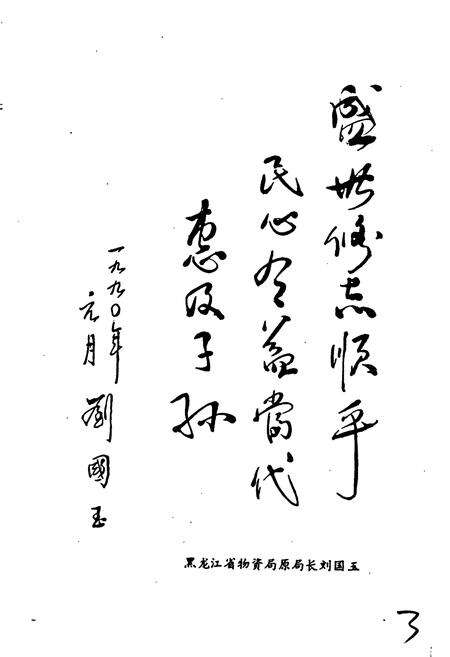 盛世修志顺乎
民心有益當代
惠及子孙
一九九〇年
元月
劉國玉
黑龙江省物资局原局长刘国玉
3